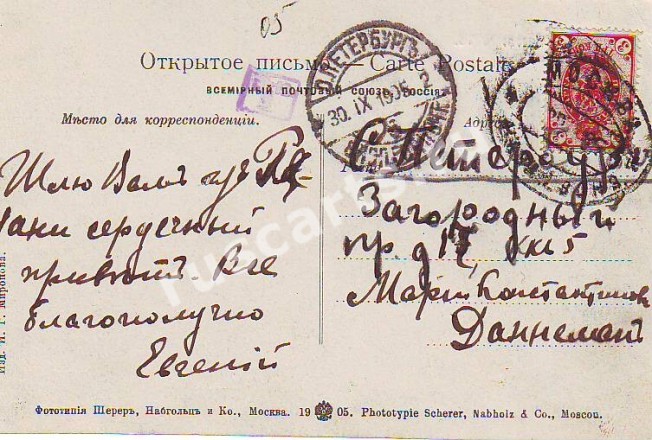 05
Открытое письмо. — Carte Postale
ВСЕМІРНЫЙ ПОЧТОВЫЙ СОЮЗЪ. РОССІЯ.
Мѣсто для корреспонденціи.
С.ПЕТЕРБУРГЪ
30.IX.1905
Шлю Вамъ изъ
сердечный
привѣтъ. Все
благополучно
Евгеній
С. Петербургъ
Загородный
пр. д 17, кв 5
Маріи Константиновнѣ
Даннеманъ
Изд. П. Г. Миронова.
Фототипія Шереръ, Набгольцъ и Ко., Москва. 19 05. Phototypie Scherer, Nabholz & Co., Moscou.